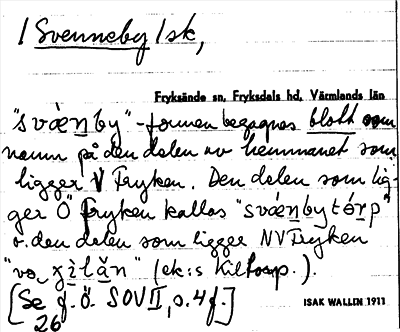 /Svenneby/sk,
Fryksände sn, Fryksdals hd, Värmlands län
"svæ̀n̲by" - formen begagnas blott som
namn på den delen av hemmanet som
ligger V Fryken. Den delen som lig-
ger Ö Fryken kallas "svæn̲bytórp"
o. den delen som ligger NV Fryken
(ek:s Kiltorp.).
[Se f.ö. SOV II, s. 4 f.]
26
ISAK WALLIN 1911